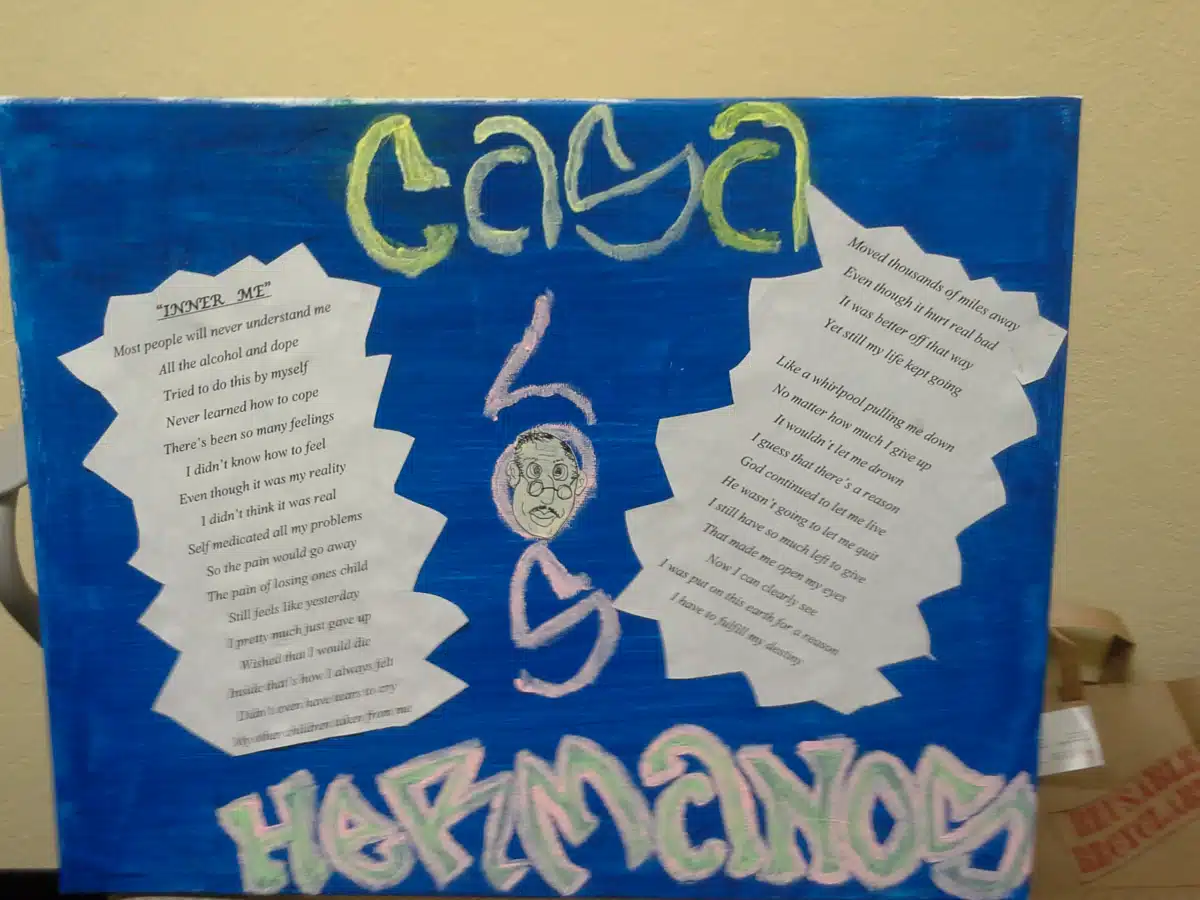 Casa
Los
Hermanos
"INNER ME"
Most people will never understand me
All the alcohol and dope
Tried to do this by myself
Never learned how to cope
There's been so many feelings
I didn't know how to feel
Even though it was my reality
I didn't think it was real
Self medicated all my problems
So the pain would go away
The pain of losing ones child
Still feels like yesterday
I pretty much just gave up
Wished that I would die
Inside that's how I always felt
Didn't even have tears to cry
My other children taken from me
Moved thousands of miles away
Even though it hurt real bad
It was better off that way
Yet still my life kept going
Like a whirlpool pulling me down
No matter how much I give up
It wouldn't let me drown
I guess that there's a reason
God continued to let me live
He wasn't going to let me quit
I still have so much left to give
That made me open my eyes
Now I can clearly see
I was put on this earth for a reason
I have to fulfill my destiny
REUSABLE
RECYCLABLE